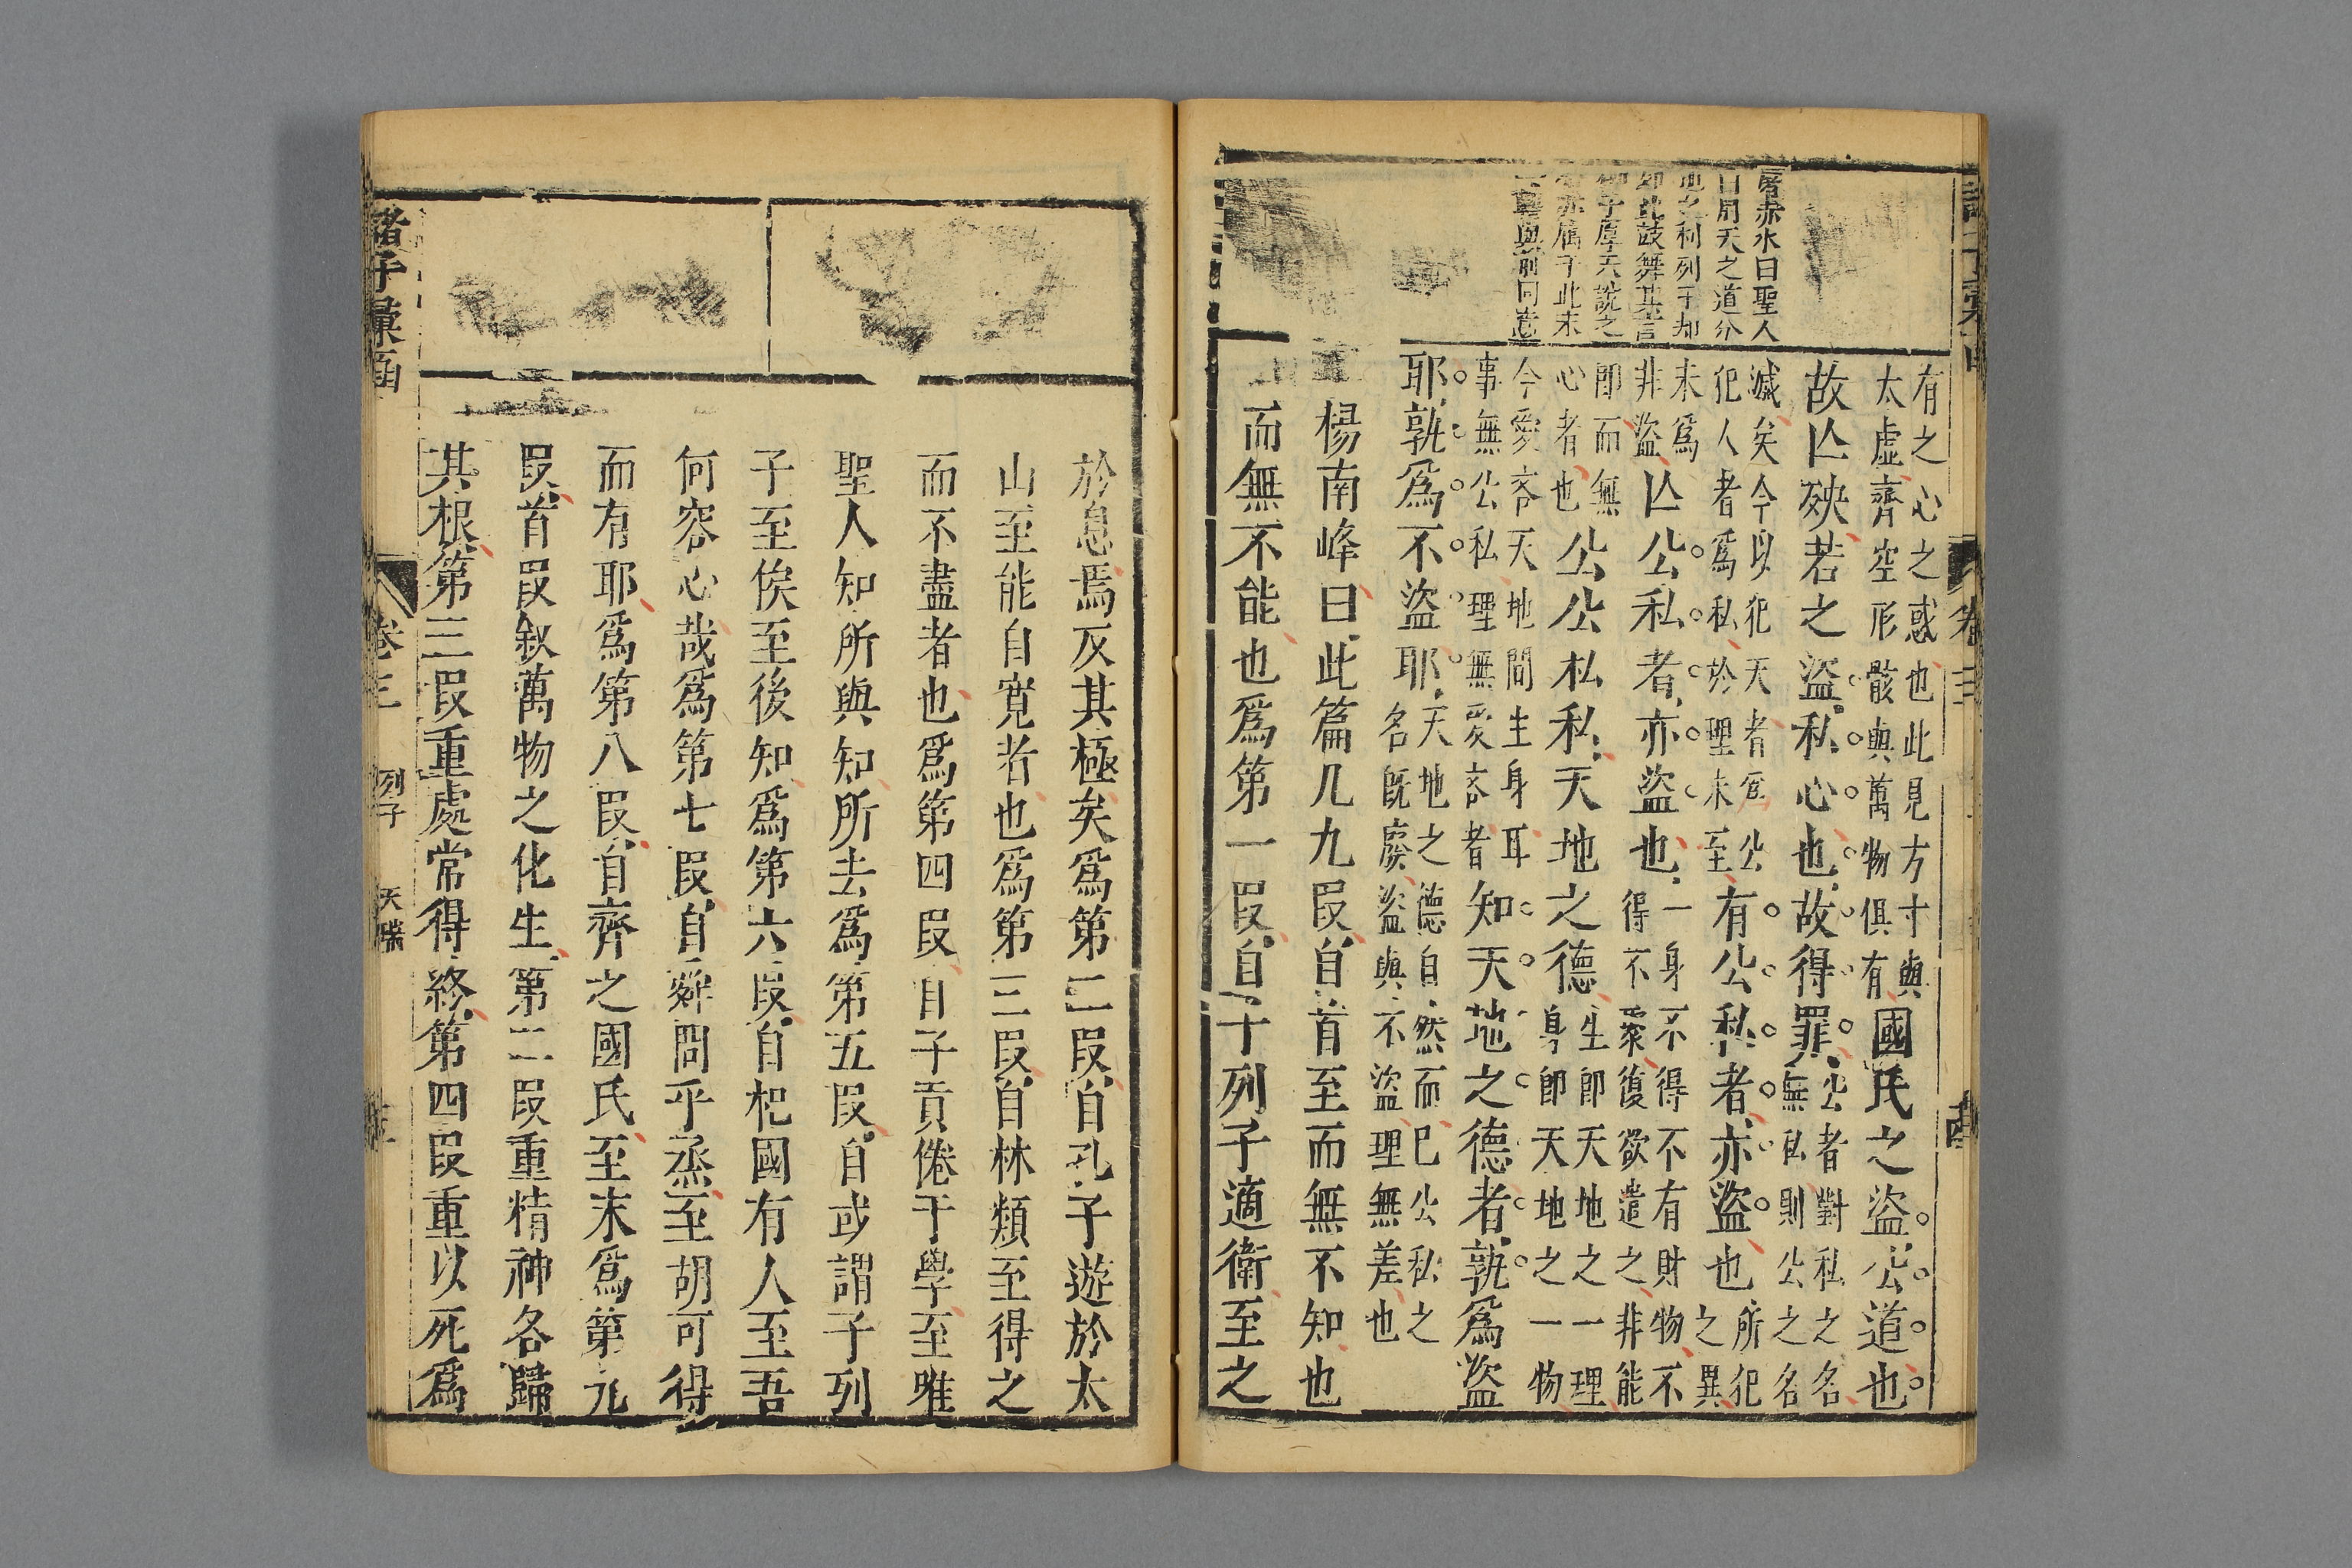 屠赤水曰聖人
因用天之道分
地之利列子却
卽此鼓舞其言
柳子厚天說之
意與前同意
有之心之惑也此見方寸與
太虛齊空形骸與萬物俱有國氏之盜公道也
故亾殃若之盜私心也故得罪公者對私之名
無私則公之名
滅矣今以犯天者爲公
犯人者爲私於理未至有公私者亦盜也所犯
之異
未爲
非盜亾公私者亦盜也一身不得不有財物不
得不聚復欲遣之非能
卽而無
心者也公公私私天地之德生卽天地之一理
身卽天地之一物
今愛吝天地間生身耳
事無公私理無愛吝者知天地之德者孰爲盜
耶孰爲不盜耶天地之德自然而已公私之
名旣廢盜與不盜理無差也
楊南峰曰此篇凡九段自首至而無不知也
而無不能也爲第一段自子列子適衛至之
於息焉反其極矣爲第二段自孔子遊於太
山至能自寬者也爲第三段自林類至得之
而不盡者也爲第四段自子貢倦于學至唯
聖人知所與知所去爲第五段自或謂子列
子至俟至後知爲第六段自杞國有人至吾
何容心哉爲第七段自舜問乎烝至胡可得
而有耶爲第八段自齊之國氏至末爲第九
段首段敘萬物之化生第二段重精神各歸
其根第三段重處常得終第四段重以死爲
諸子彙函
卷三
列子
天瑞